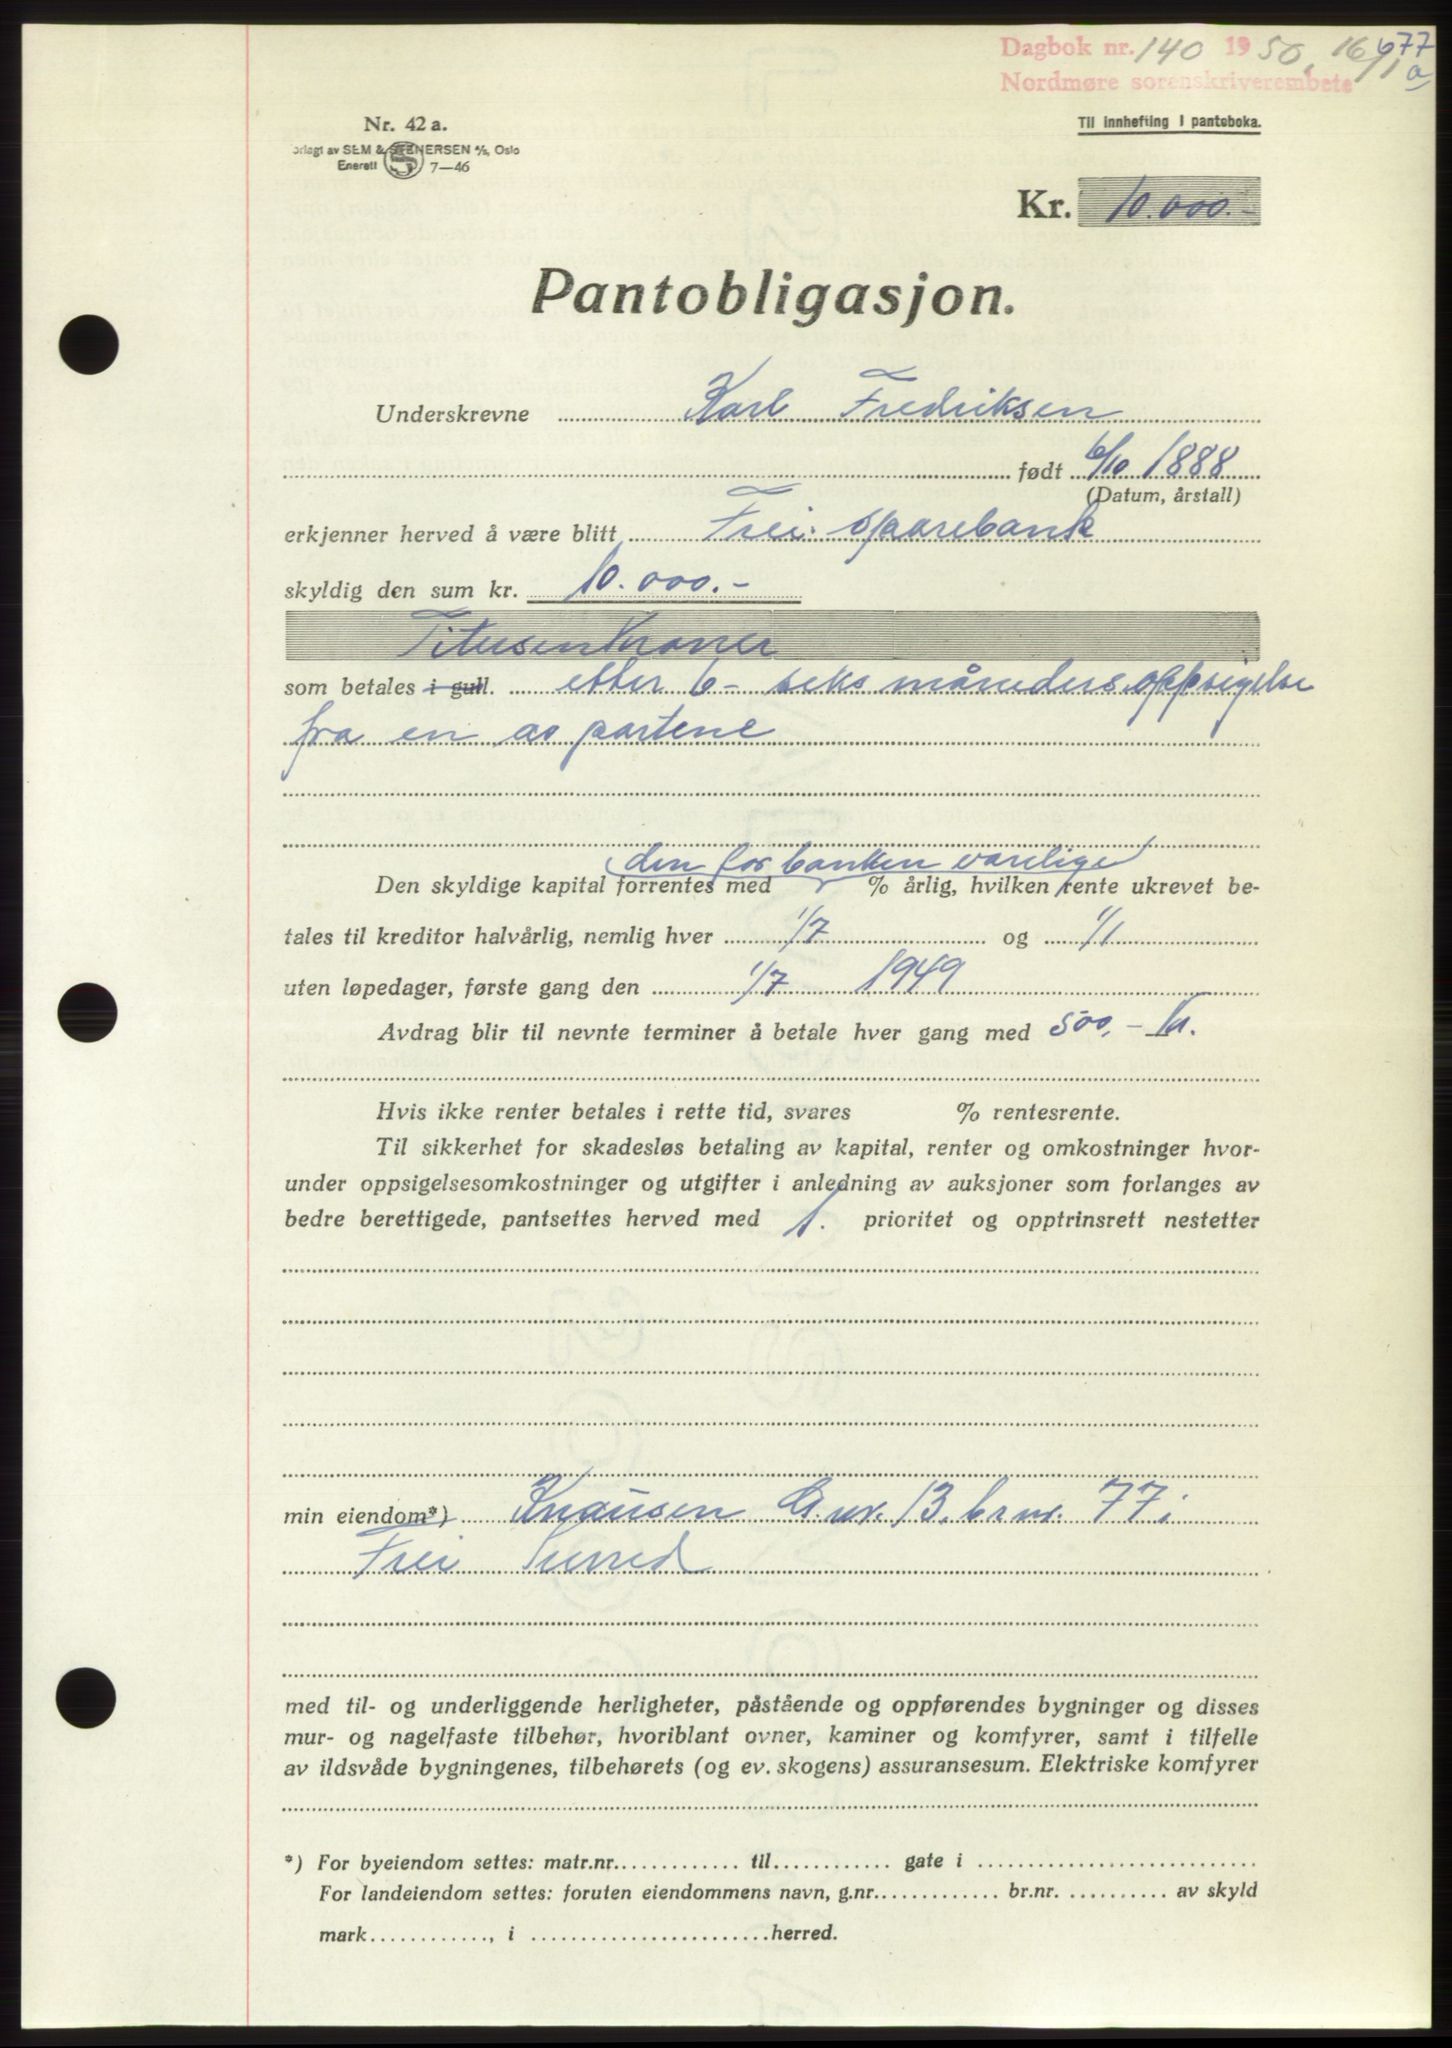 Dagbok nr. 140 1950. 16/1 677
Nordmøre sorenskriverembete a
Nr. 42 a.
orlagt av SEM & STENERSEN A/S, Oslo
Enerett S 7—46
Til innhefting i panteboka.
Kr. 10.000.-
Pantobligasjon.
Underskrevne Karl Fredriksen
født 6/10 1888
(Datum, årstall)
erkjenner herved å være blitt Frei sparebank
skyldig den sum kr. 10.000.-
Titusenkroner
som betales i gull. etter 6- seks måneders oppsigelse
fra en av partene
den for banken vanlige
Den skyldige kapital forrentes med % årlig, hvilken rente ukrevet be-
tales til kreditor halvårlig, nemlig hver 1/7 og 1/1
uten løpedager, første gang den 1/7 1949
Avdrag blir til nevnte terminer å betale hver gang med 500,- kr.
Hvis ikke renter betales i rette tid, svares % rentesrente.
Til sikkerhet for skadesløs betaling av kapital, renter og omkostninger hvor-
under oppsigelsesomkostninger og utgifter i anledning av auksjoner som forlanges av
bedre berettigede, pantsettes herved med 1. prioritet og opptrinsrett nestetter
min eiendom*) Knausen G.nr. 13, br.nr. 77 i
Frei herred
med til- og underliggende herligheter, påstående og oppførendes bygninger og disses
mur- og nagelfaste tilbehør, hvoriblant ovner, kaminer og komfyrer, samt i tilfelle
av ildsvåde bygningenes, tilbehørets (og ev. skogens) assuransesum. Elektriske komfyrer
*) For byeiendom settes: matr.nr. til gate i
For landeiendom settes: foruten eiendommens navn, g.nr. br.nr. av skyld
mark , i herred.